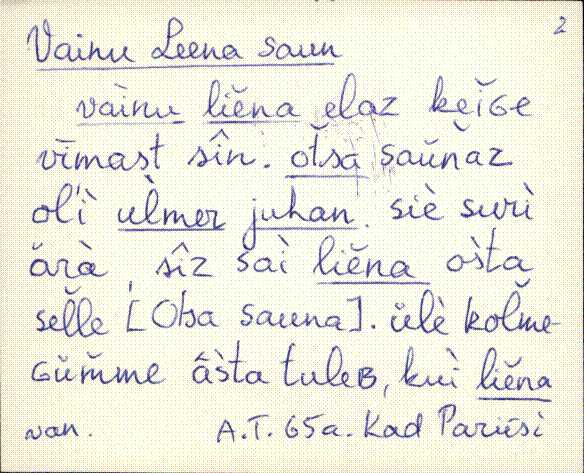 2
Vainu Leena saun
vàinu liĕna elaz keĭGe
vīmast sîn. otsa saŭn̆az
ol'ì ùlmer juhan. siè surì
ärà, sîz saì liĕna òsta
sel̆le [Otsa sauna]. ülè kol̆me-
Gŭm̆me âsta tuleB, kuì liĕna
van. A.T. 65a. Kad Pariisi